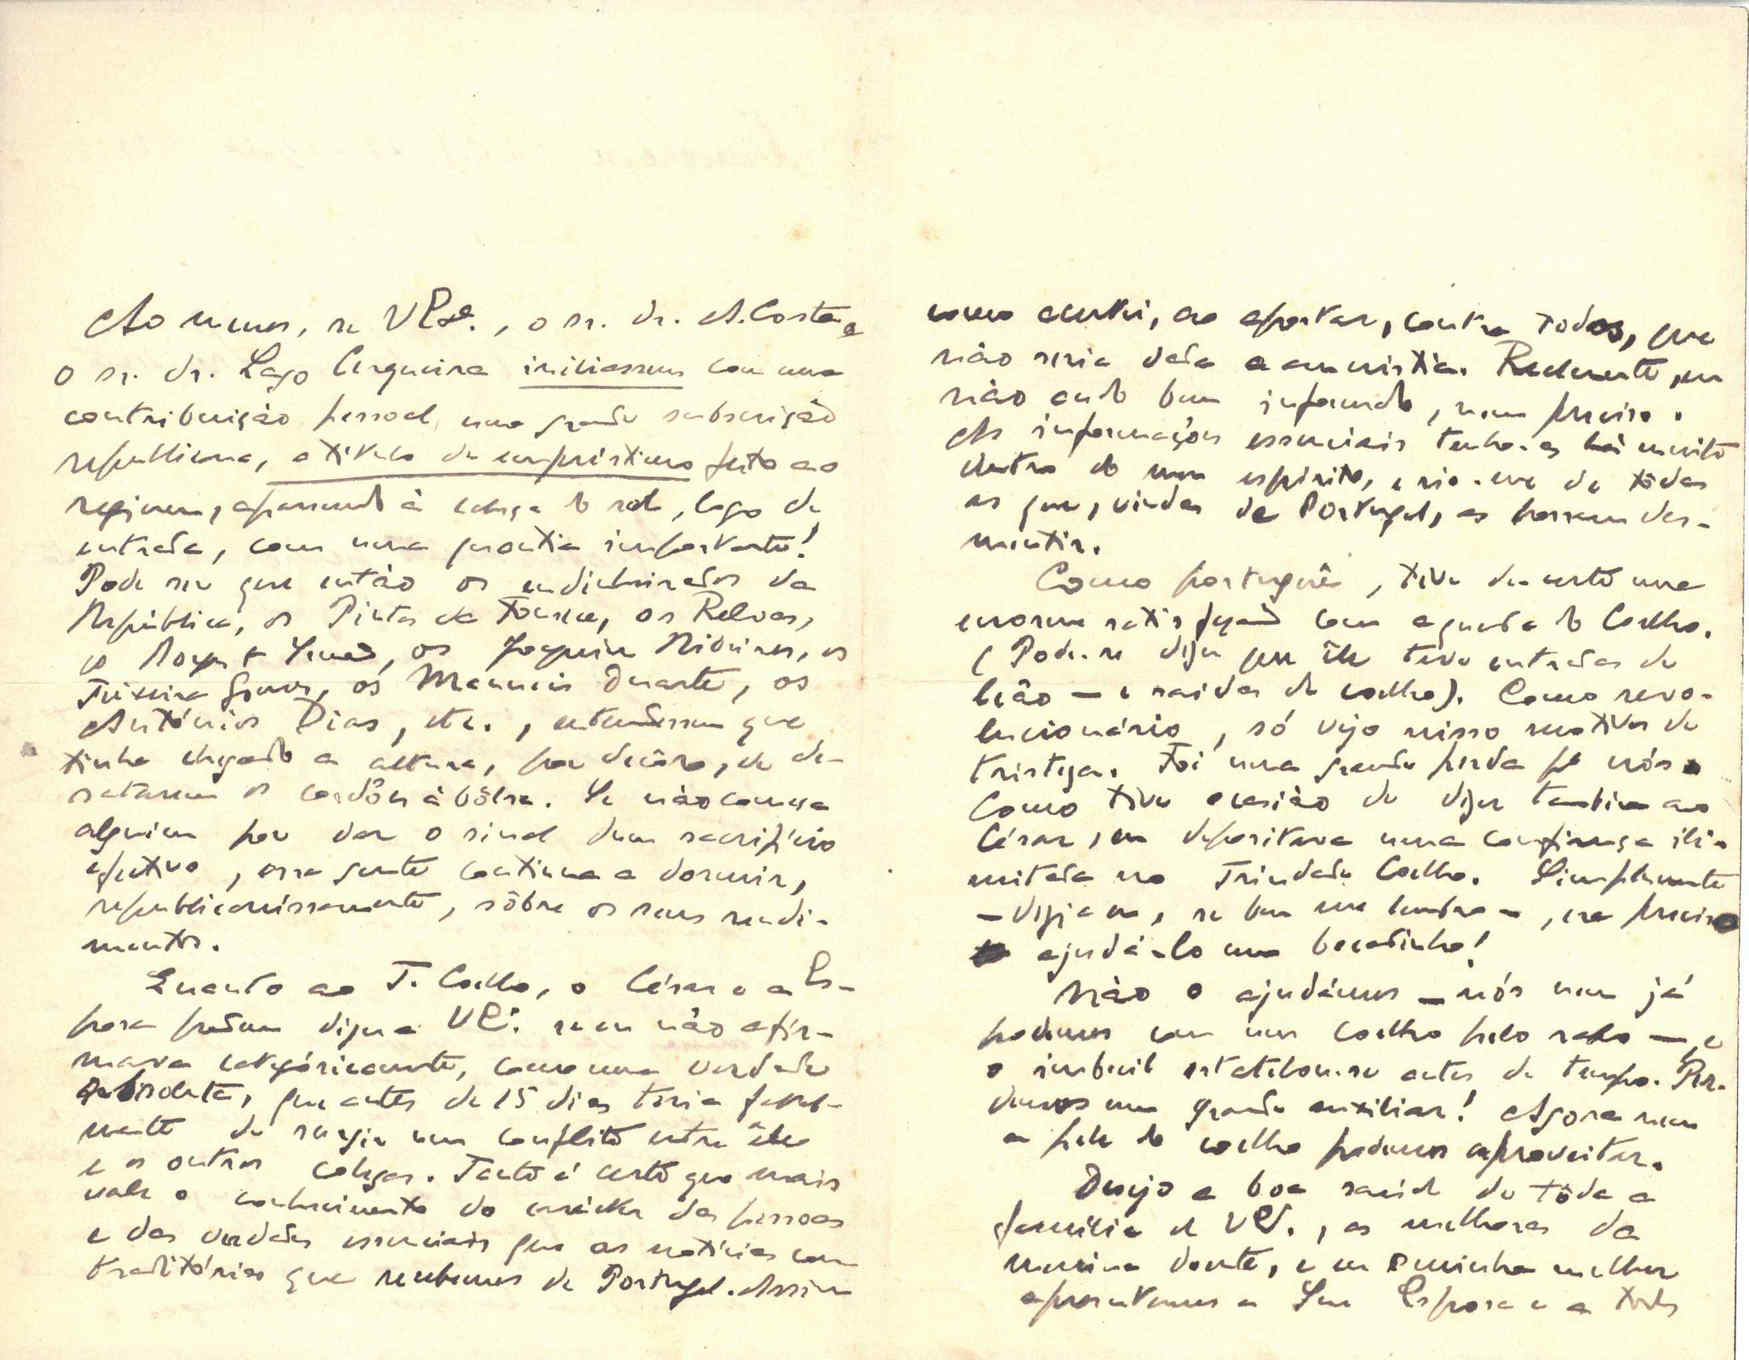 Ao menos, se V. Ex.ª, o sr. dr. A. Costa e
o sr. dr. Lago Cerqueira iniciassem com uma
contribuição pessoal, uma grande subscrição
republicana, a título de empréstimo feito ao
regimen, aparecendo à cabeça do rol, logo de
entrada, com uma quantia importante!
Pode ser que então os endinheirados da
República, os Pintos da Fonseca, os Relvas,
os os Joaquim Ribeiros, os
Teixeira Gomes, os Manueis Duarte, os
Antónios Dias, etc., entendessem que
tinha chegado a altura, por decôro, de de-
satarem os cordões à bôlsa. Se não começa
alguém por dar o sinal dum sacrifício
efectivo, essa gente continua a dormir,
republicanissamente, sôbre os seus rendi-
mentos.
Quanto ao T. Coelho, o César e a Es-
posa podem dizer a V. Ex.ª se eu não afir-
mava categóricamente, como uma verdade
absoluta, que antes de 15 dias teria fatal-
mente de surgir um conflito entre êle
e os outros colegas. Tanto é certo que mais
vale o conhecimento do carácter das pessoas
e das verdades essenciais que as notícias con-
traditórias que recebemos de Portugal. Assim
como acertei, ao apostar, contra todos, que
não seria dada a amnistia. Realmente, eu
não ando bem informado, nem preciso.
As informações essenciais tenho-as há muito
dentro do meu espírito, e rio-me de tôdas
as que, vindas de Portugal, as possam des-
mentir.
Como português, tive decerto uma
enorme satisfação com a queda do Coelho.
(Pode-se dizer que êle teve entradas de
leão — e saídas de coelho). Como revo-
lucionário, só vejo nisso motivos de
tristeza. Foi uma grande perda pª nós.
Como tive ocasião de dizer também ao
César, eu depositava uma confiança ili-
mitada no Trindade Coelho. Simplesmente
— dizia eu, se bem me lembro —, era preciso
ajudá-lo um bocadinho!
Não o ajudámos — nós nem já
podemos com um coelho pelo rabo —, e
o imbecil estatelou-se antes de tempo. Per-
demos um grande auxiliar! Agora nem
a pele do coelho podemos aproveitar.
Desejo a boa saúde de tôda a
família de V. Ex.ª, as melhoras da
menina doente, e eu e minha mulher
apresentamos a Sua Esposa e a todos